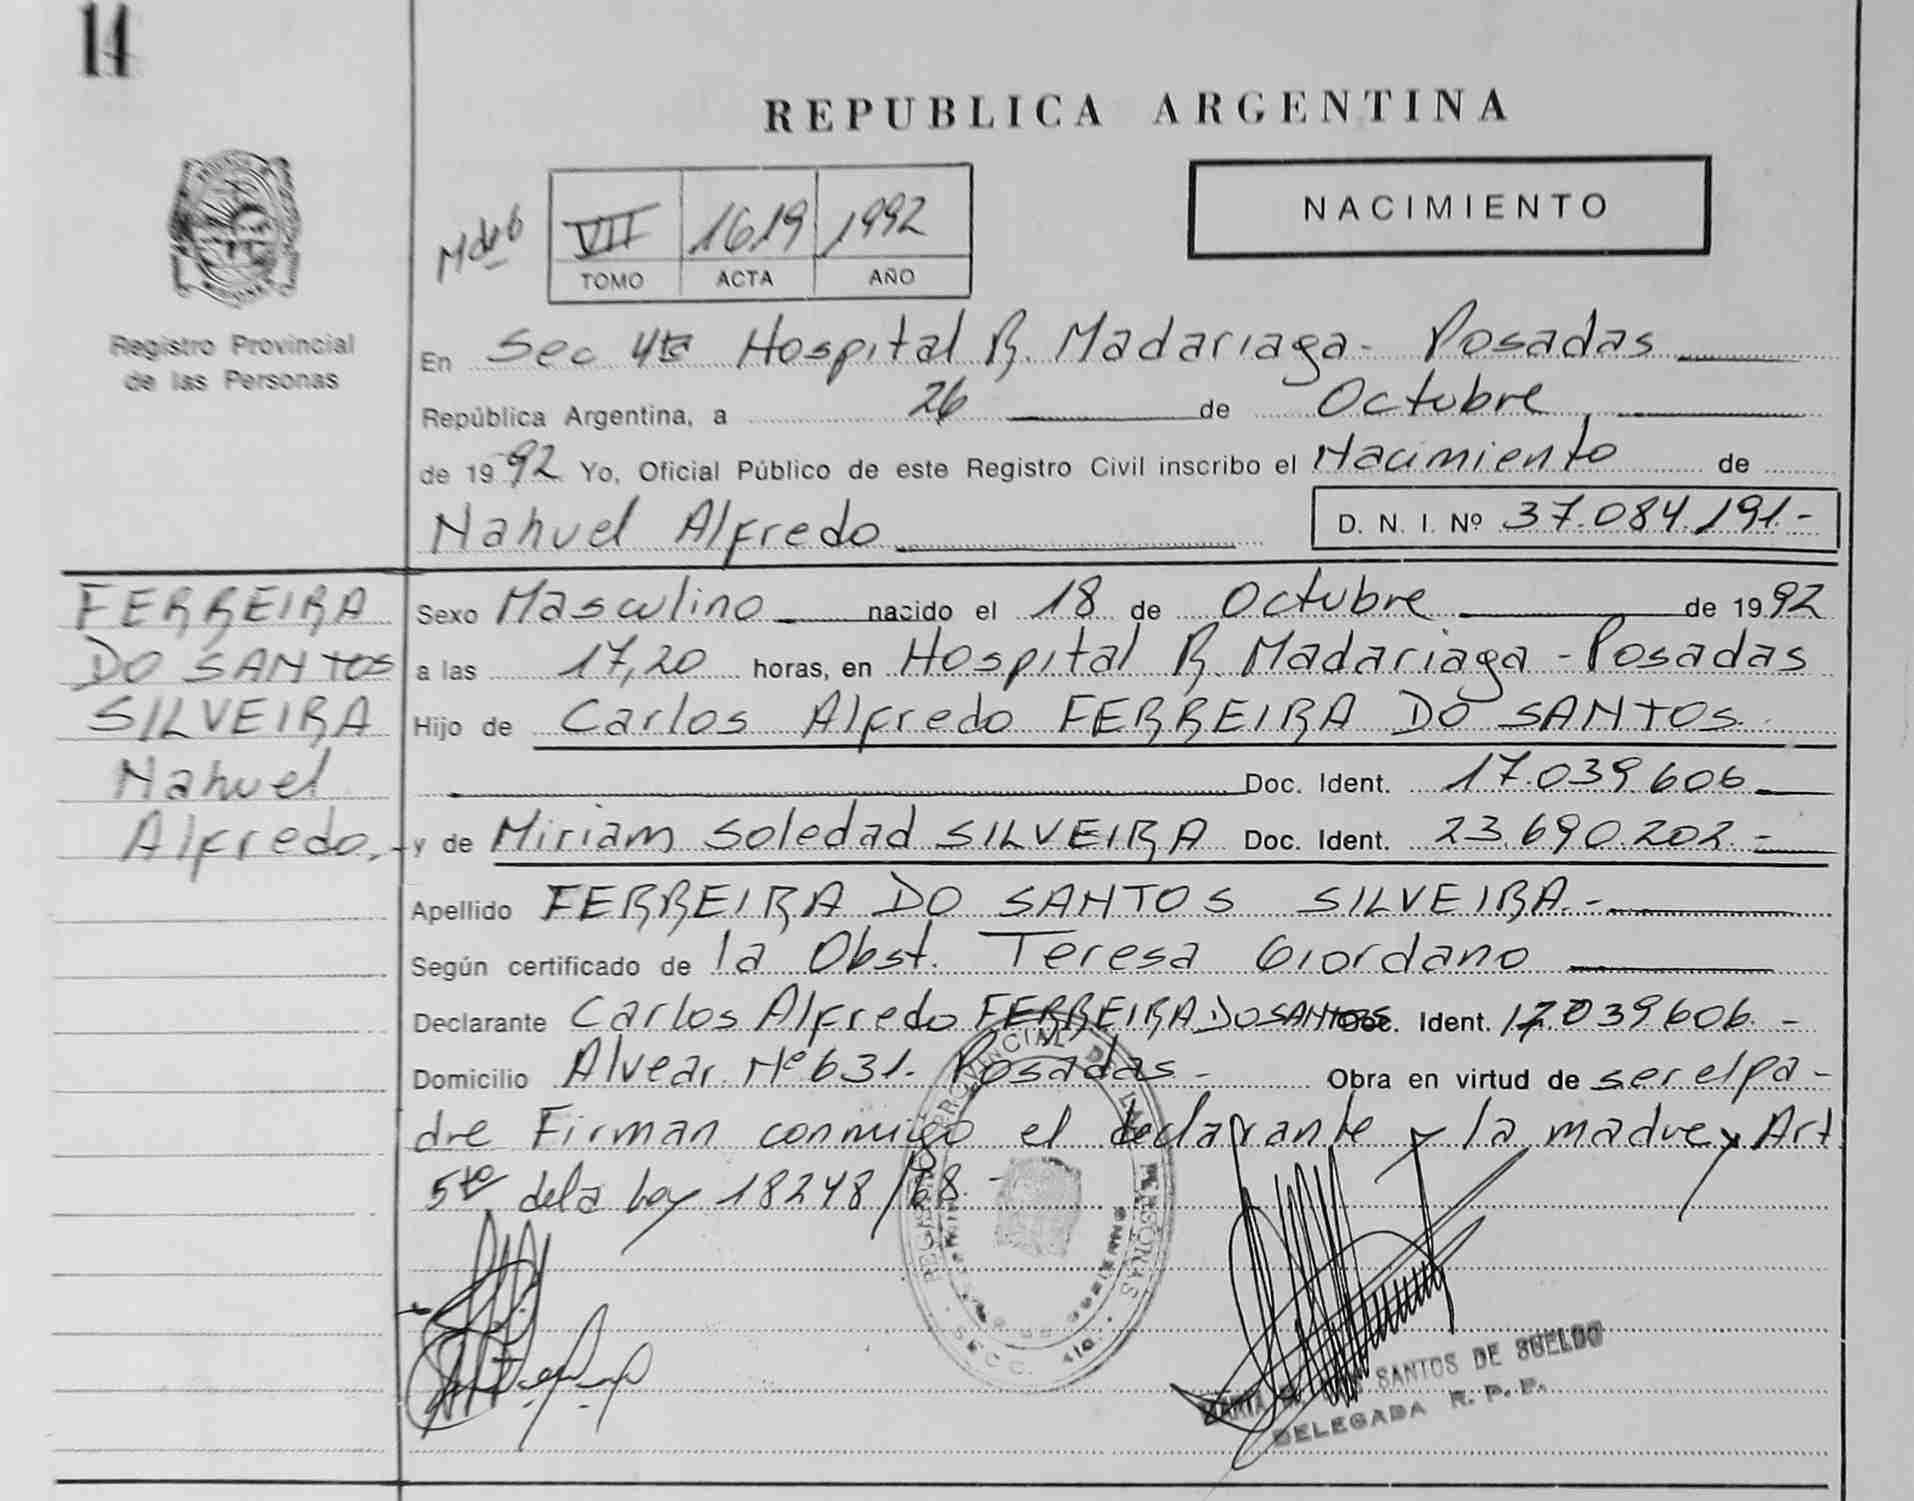 14
REPUBLICA ARGENTINA
NACIMIENTO
VII 1619 1992
TOMO ACTA AÑO
Registro Provincial
de las Personas
En Sec 4ta Hospital R. Madariaga - Posadas
República Argentina, a 26 de Octubre
de 1992 Yo, Oficial Público de este Registro Civil inscribo el Nacimiento de
Nahuel Alfredo D. N. I. Nº 37.084.191.-
FERREIRA
DO SANTOS
SILVEIRA
Nahuel
Alfredo.-
Sexo Masculino nacido el 18 de Octubre de 1992
a las 17,20 horas, en Hospital R. Madariaga - Posadas
Hijo de Carlos Alfredo FERREIRA DO SANTOS.
Doc. Ident. 17.039.606
y de Miriam Soledad SILVEIRA Doc. Ident. 23.690.202.-
Apellido FERREIRA DO SANTOS SILVEIRA.-
Según certificado de la Obst. Teresa Giordano
Declarante Carlos Alfredo FERREIRA DO SANTOS Doc. Ident. 17.039606.-
Domicilio Alvear Nº 631. Posadas - Obra en virtud de ser el pa-
dre Firman conmigo el declarante y la madre y Art.
5to de la Ley 18248/68.-
PROVINCIAL DE LAS PERSONAS
SECC. 4ta.
SANTOS DE SUELDO
DELEGADA R. P. P.